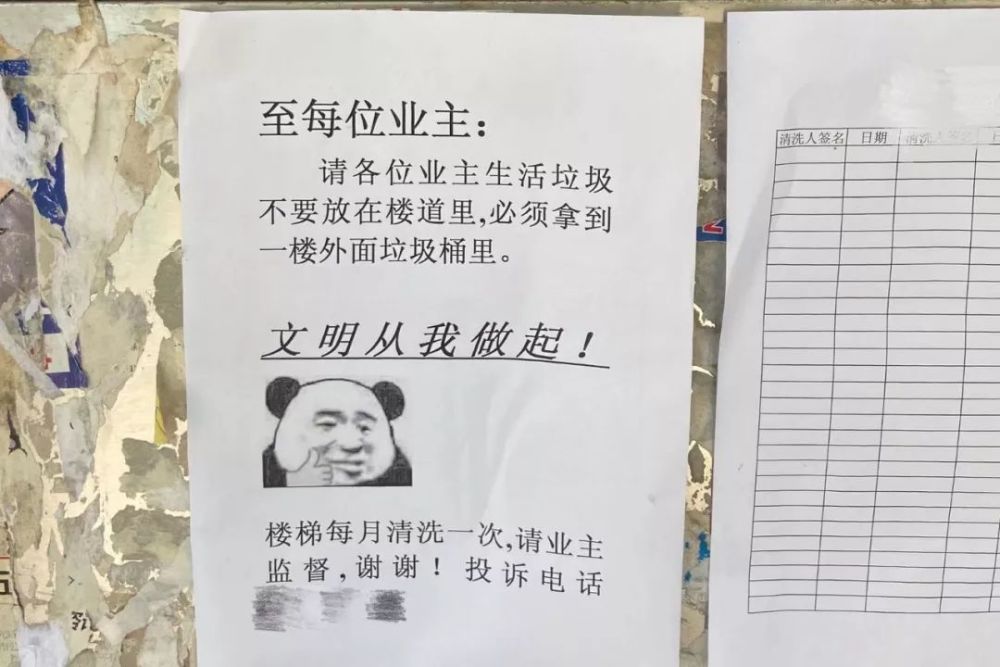 至每位业主：
请各位业主生活垃圾
不要放在楼道里,必须拿到
一楼外面垃圾桶里。
文明从我做起！
楼梯每月清洗一次,请业主
监督,谢谢！投诉电话
清洗人签名 日期 清洗人签名 上